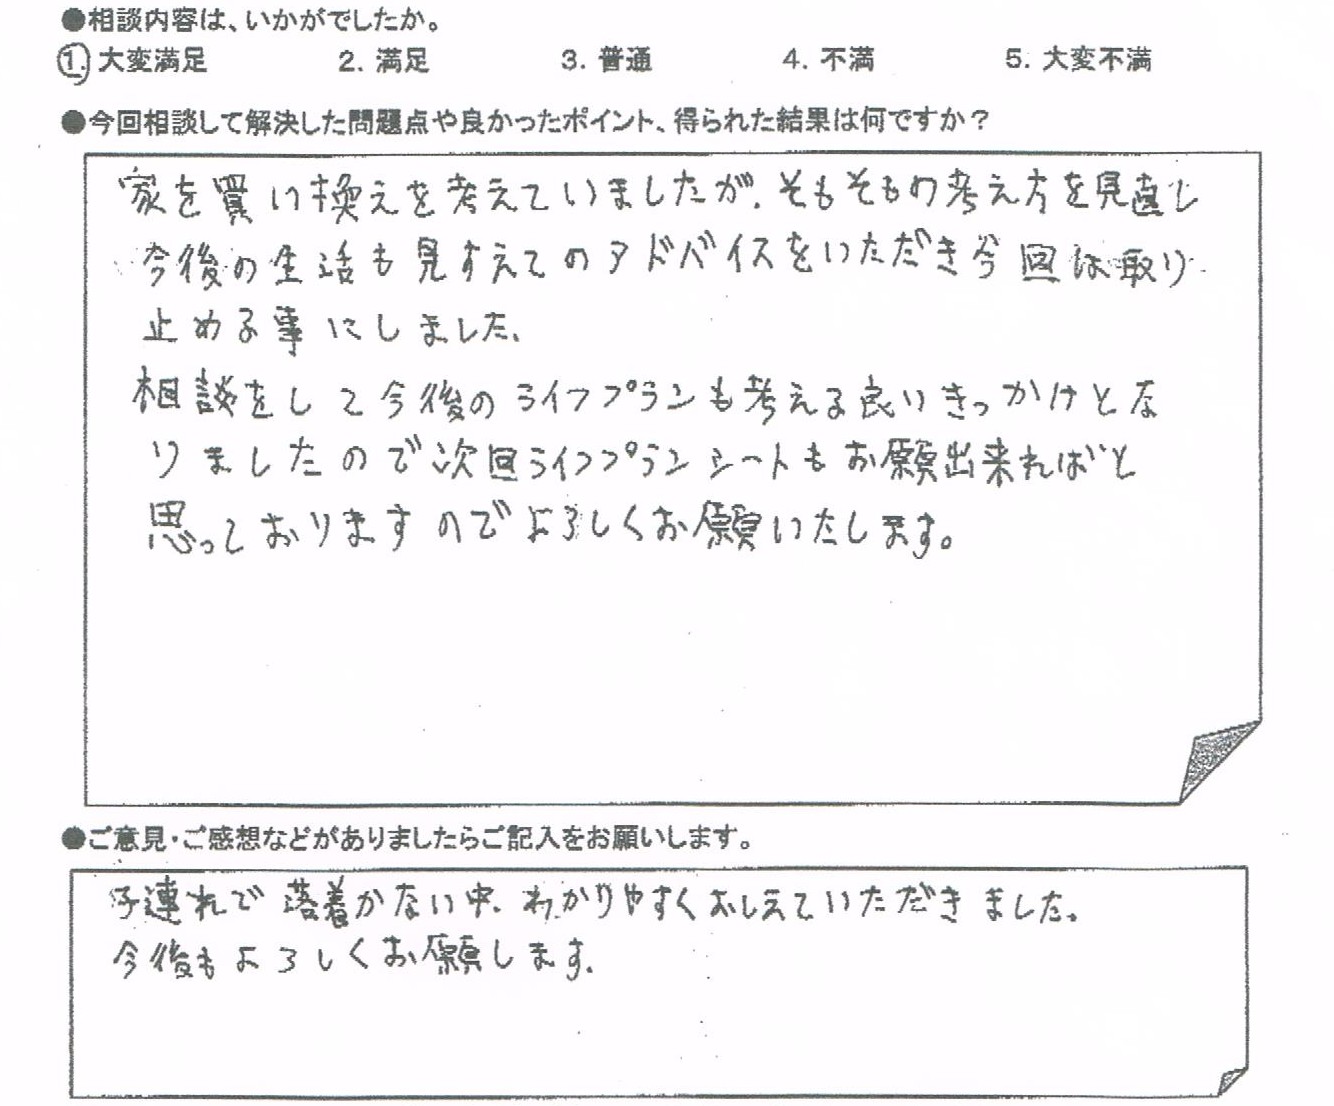 ●相談内容は、いかがでしたか。
1. 大変満足 2. 満足 3. 普通 4. 不満 5. 大変不満
●今回相談して解決した問題点や良かったポイント、得られた結果は何ですか？
家を買い換えを考えていましたが、そもそもの考え方を見直し
今後の生活も見すえてのアドバイスをいただき今回は取り
止める事にしました、
相談をして今後のライフプランも考える良いきっかけとな
りましたので次回ライフプランシートもお願出来ればと
思っておりますのでよろしくお願いいたします。
●ご意見・ご感想などがありましたらご記入をお願いします。
子連れで落着かない中、わかりやすくおしえていただきました。
今後もよろしくお願します.